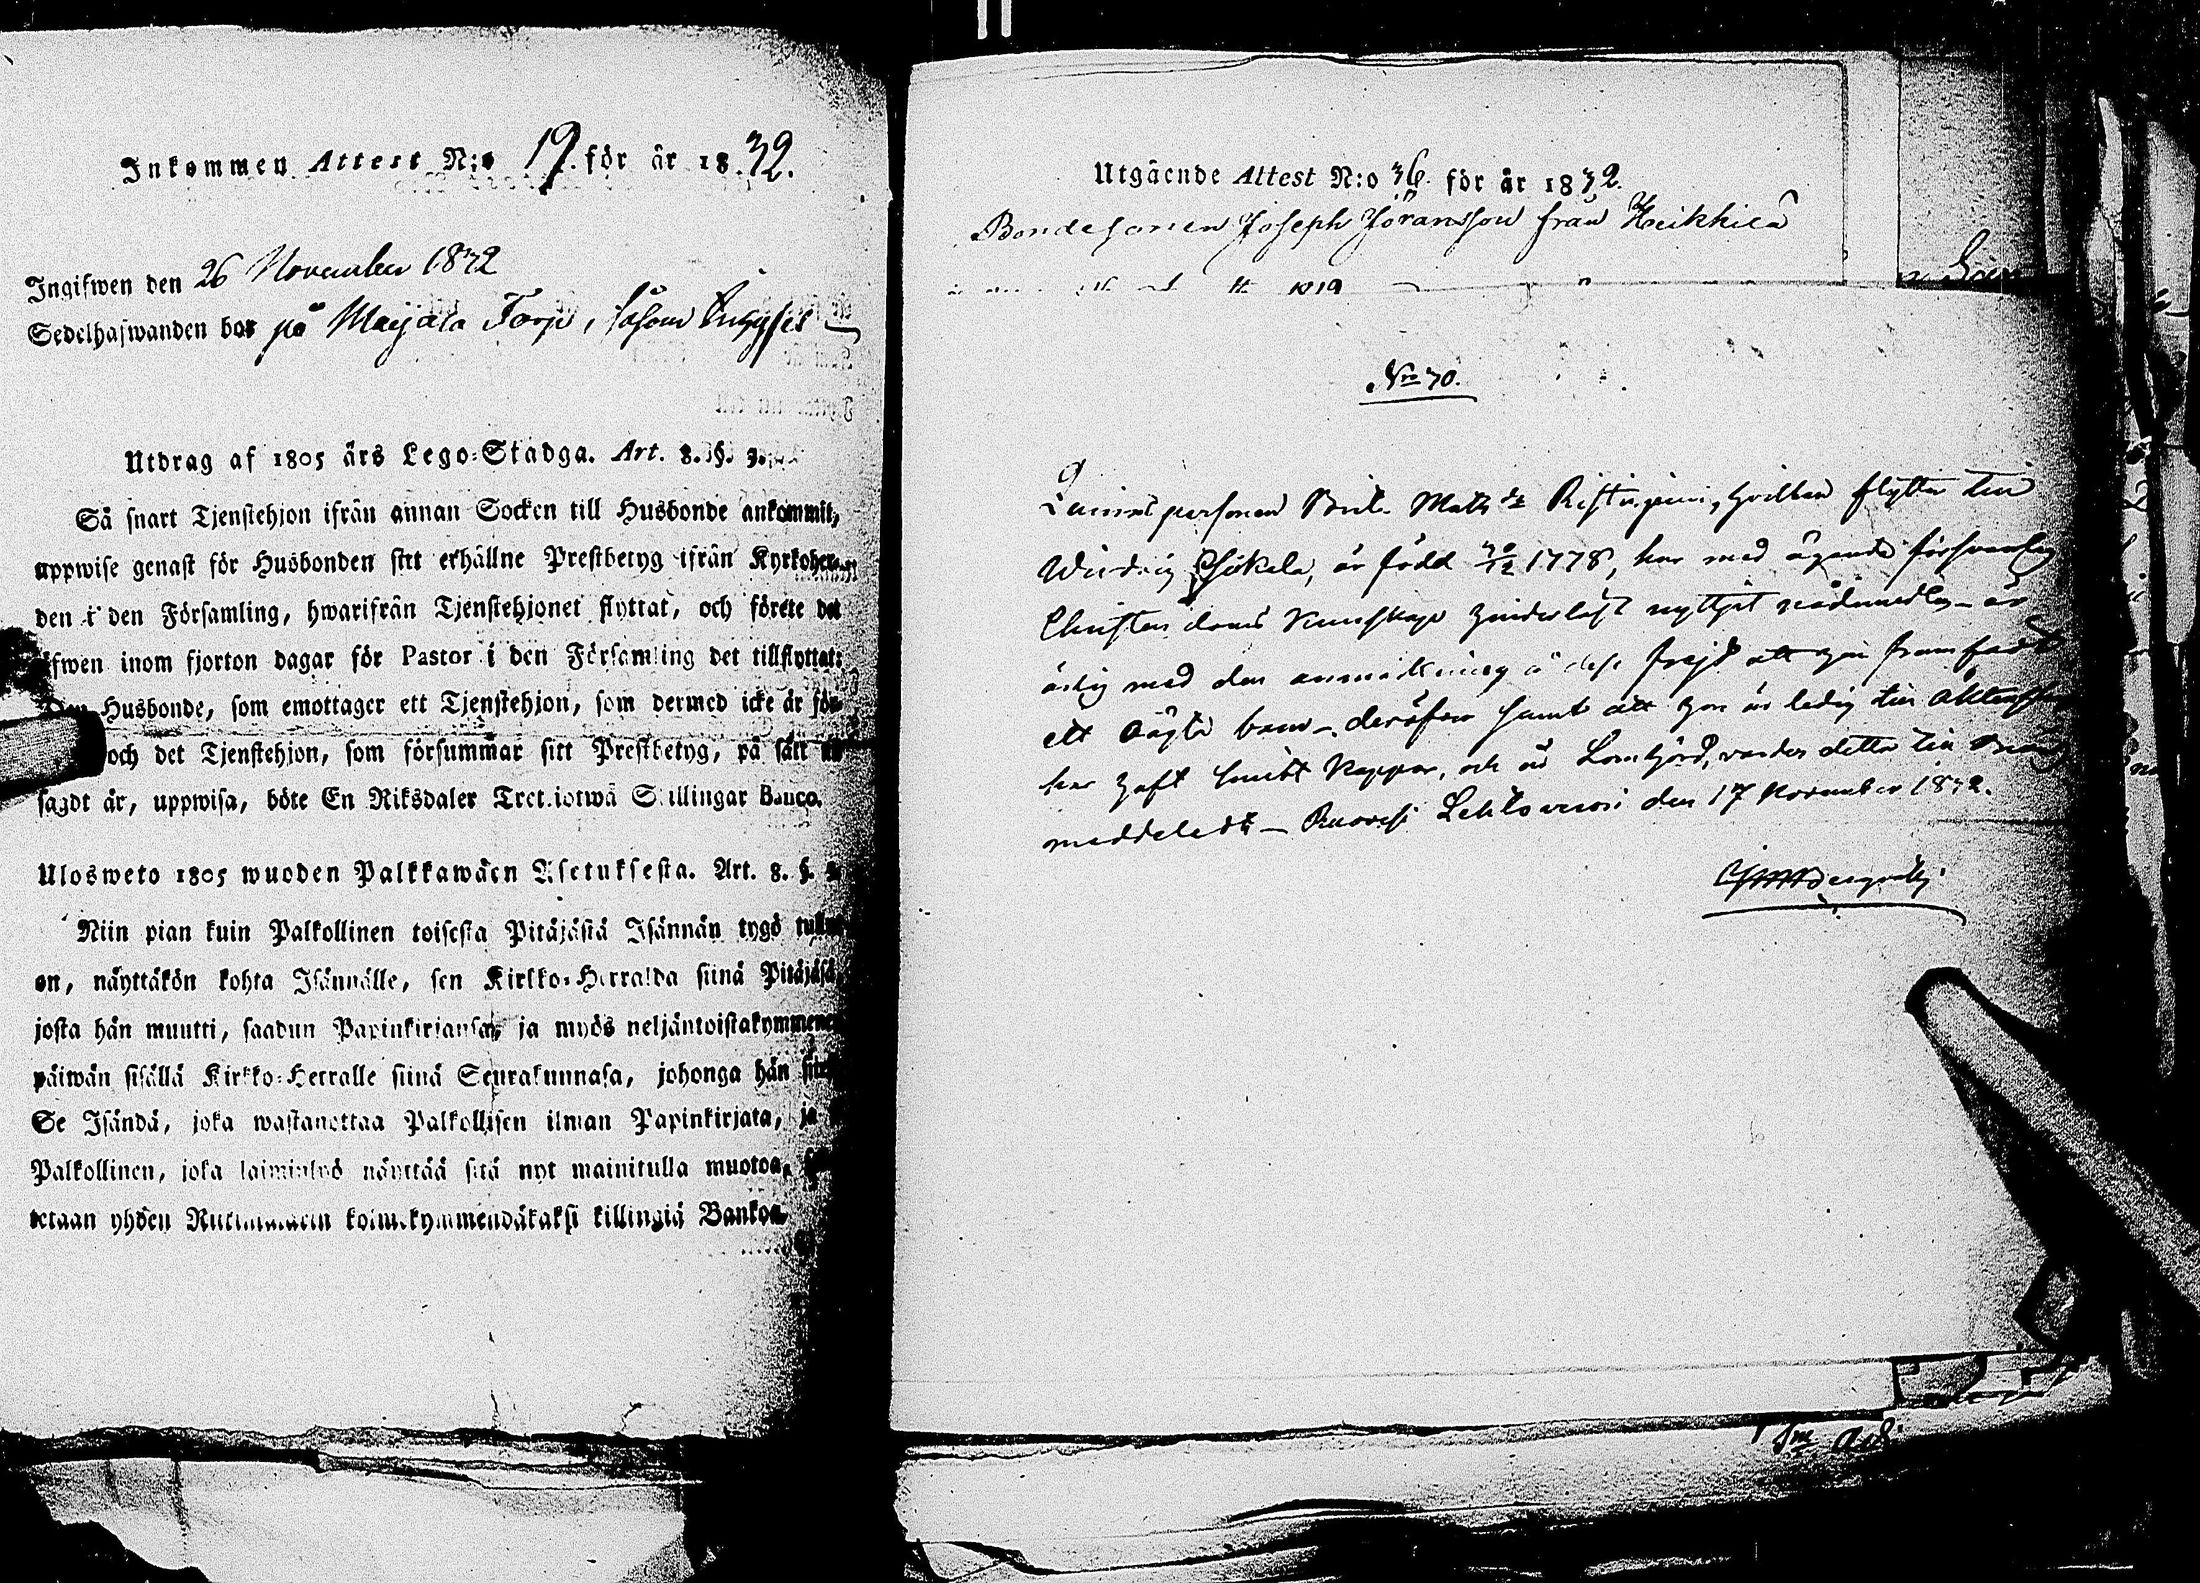 Inkommen Attest N:o 19. för år 1832.
Ingifwen den 26 November 1832
Sedelhafwanden bor på Maijala Torp, såsom
Utdrag af 1805 års Lego-Stadga. Art. 8. §. 3.
Så snart Tjenstehjon ifrån annan Socken till Husbonde ankommit,
uppwise genast för Husbonden sitt erhållne Prestbetyg ifrån Kyrkoher-
den i den Församling, hwarifrån Tjenstehjonet flyttat, och förete det
äfwen inom fjorton dagar för Pastor i den Församling det tillflyttat:
Den Husbonde, som emottager ett Tjenstehjon, som dermed icke är för-
och det Tjenstehjon, som försummar sitt Prestbetyg, på sätt
sagdt är, uppwisa, böte En Riksdaler Trettiotwå Skillingar Banco.
Ulosweto 1805 wuoden Palkkawäen Asetuksesta. Art. 8. §.
Niin pian kuin Palkollinen toisesta Pitäjästä Isännän tygö tullut
on, näyttäkön kohta Isännälle, sen Kirkko-Herralda siinä Pitäjäsä,
josta hän muutti, saadun Papinkirjansa, ja myös neljäntoistakymmenen
päiwän sisällä Kirkko-Herralle siinä Seurakunnasa, johonga hän
Se Isändä, joka wastanottaa Palkollisen ilman Papinkirjata, ja
Palkollinen, joka laiminlyö näyttää sitä nyt mainitulla muotoa,
tetaan yhden kolmekymmendäkaksi killingiä Bankos.
Utgående Attest N:o 36. för år 1832.
Bondesonen Joseph Jöransson från Heikkilä
1819
Nro 70.
Qvinnspersonen Brit. Matts dr Ristinpieni, hvilken flyttar till
Wirdois är född 30/12 1778, har med ägande försvarlig
Christendoms Kunskap hinderlöst nyttjat nådemedlen – är
ärlig med den anmärkning å dess frejd att hon framfödt
ett oägta barn – deröfver samt att hon är ledig till Äktenskap
har haft Koppor, och är detta till
meddeladt – Ruovesi den 17 November 1832.